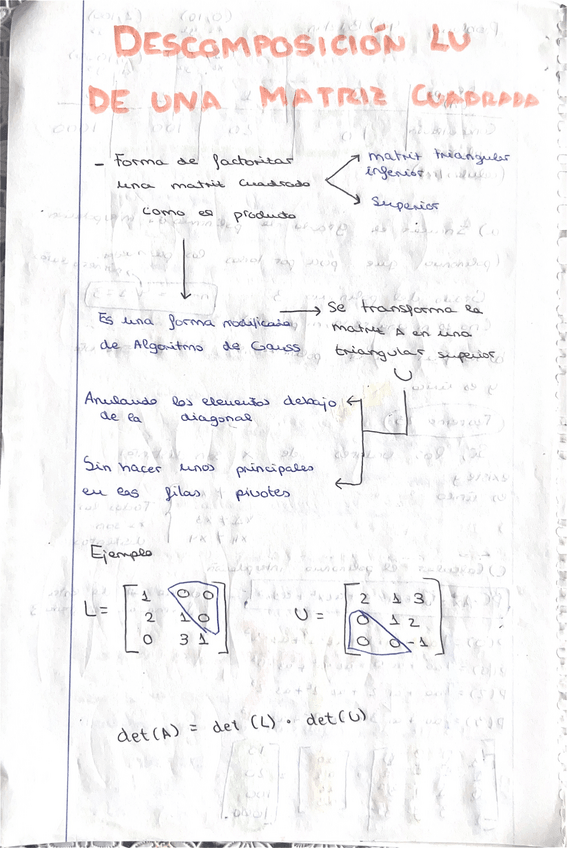 DESCOMPOSICIÓN LU
DE UNA MATRIZ CUADRADA
- Forma de factorizar
una matriz cuadrada
como el producto
matriz triangular
inferior
Superior
Es una forma modificada
de Algoritmo de Gauss
Se transforma la
matriz A en una
triangular superior
U
Anulando los elementos debajo
de la diagonal
Sin hacer unos principales
en las filas y pivotes
Ejemplo
L = [ 1 0 0
2 1 0
0 3 1 ]
U = [ 2 1 3
0 1 2
0 0 -1 ]
det(A) = det (L) · det(U)